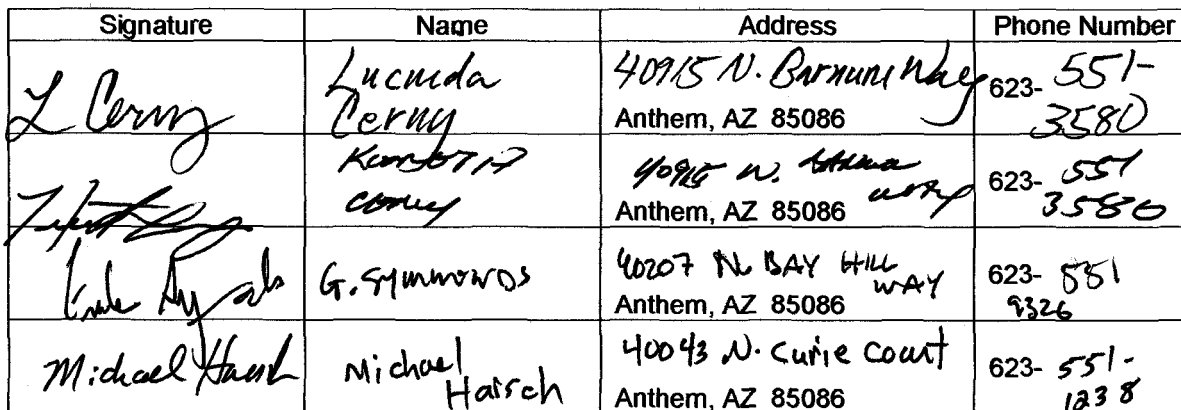 Signature Name Address Phone Number
L Cerny Lucinda Cerny 40915 N. Barnum Way Anthem, AZ 85086 623- 551-3580
40915 N. Way Anthem, AZ 85086 623- 551 3580
G. Symmonds 40207 N. BAY HILL WAY Anthem, AZ 85086 623- 551 9326
Michael Haisch Michael Haisch 40043 N. Curie Court Anthem, AZ 85086 623- 551-1238